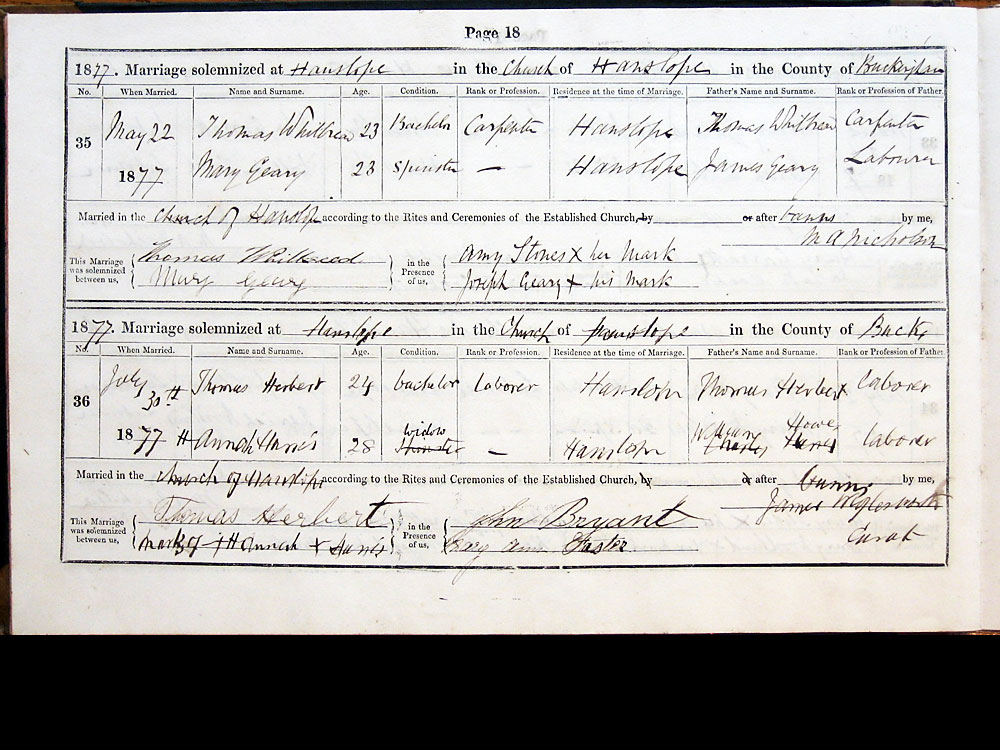 Page 18
1877. Marriage solemnized at Hanslope in the Church of Hanslope in the County of Buckingham
No. When Married. Name and Surname. Age. Condition. Rank or Profession. Residence at the time of Marriage. Father's Name and Surname. Rank or Profession of Father.
35 May 22 Thomas Whitbread 23 Bachelor Carpenter Hanslope Thomas Whitbread Carpenter
1877 Mary Geary 23 Spinster — Hanslope James Geary Labourer
Married in the Church of Hanslope according to the Rites and Ceremonies of the Established Church, by or after banns by me,
M A Nicholson
This Marriage was solemnized between us, Thomas Whitbread in the Presence of us, Amy Stones X her Mark
Mary Geary Joseph Geary X his Mark
1877. Marriage solemnized at Hanslope in the Church of Hanslope in the County of Bucks
No. When Married. Name and Surname. Age. Condition. Rank or Profession. Residence at the time of Marriage. Father's Name and Surname. Rank or Profession of Father.
36 July 30th Thomas Herbert 24 bachelor laborer Hanslope Thomas Herbert X laborer
1877 Hannah Harris 28 widow Spinster — Hanslope William Howe Charles Harris laborer
Married in the church of Hanslope according to the Rites and Ceremonies of the Established Church, by or after banns by me,
This Marriage was solemnized between us, Thomas Herbert in the Presence of us, John Bryant James
mark of Hannah X Harris Ann Foster Curate